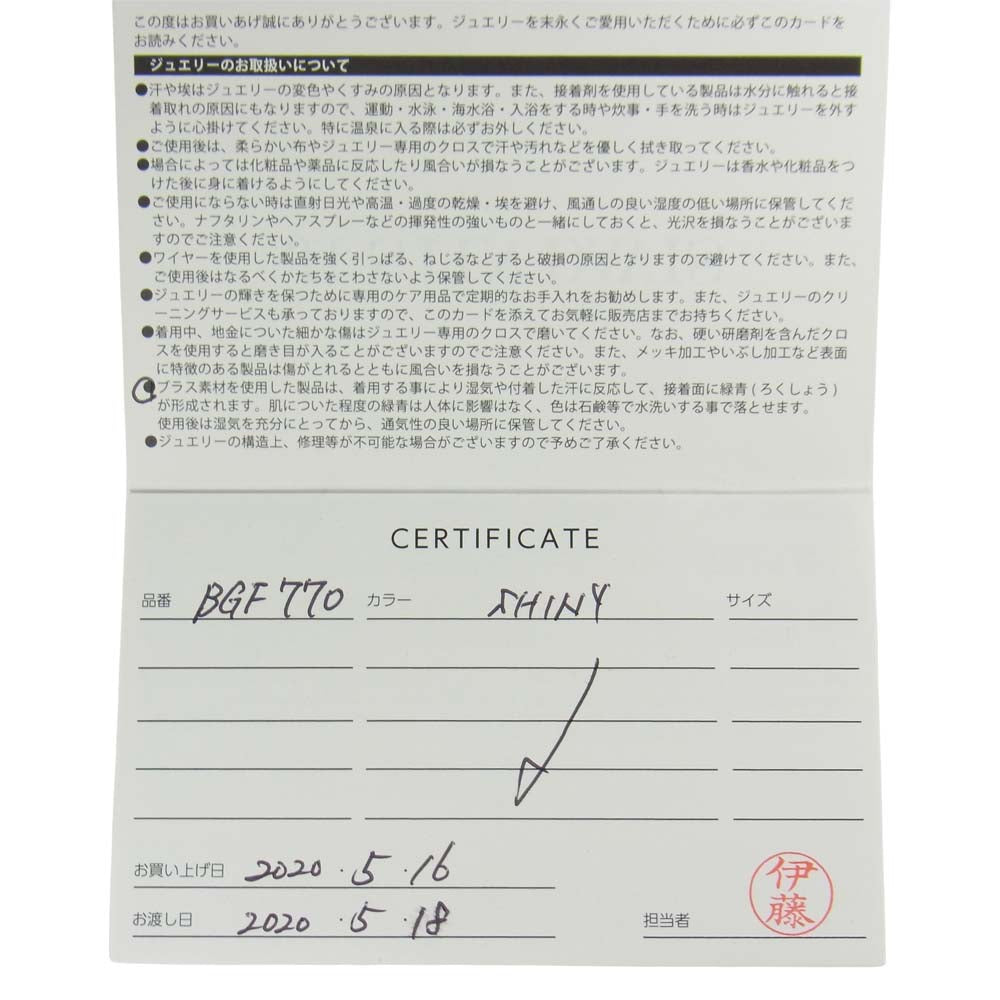 この度はお買いあげ誠にありがとうございます。ジュエリーを末永くご愛用いただくために必ずこのカードを
お読みください。
ジュエリーのお取扱いについて
●汗や埃はジュエリーの変色やくすみの原因となります。また、接着剤を使用している製品は水分に触れると接
着取れの原因にもなりますので、運動・水泳・海水浴・入浴をする時や炊事・手を洗う時はジュエリーを外す
ように心掛けてください。特に温泉に入る際は必ずお外しください。
●ご使用後は、柔らかい布やジュエリー専用のクロスで汗や汚れなどを優しく拭き取ってください。
●場合によっては化粧品や薬品に反応したり風合いが損なうことがございます。ジュエリーは香水や化粧品をつ
けた後に身に着けるようにしてください。
●ご使用にならない時は直射日光や高温・過度の乾燥・埃を避け、風通しの良い湿度の低い場所に保管してくだ
さい。ナフタリンやヘアスプレーなどの揮発性の強いものと一緒にしておくと、光沢を損なうことがございま
すのでご注意ください。
●ワイヤーを使用した製品を強く引っぱる、ねじるなどすると破損の原因となりますので避けてください。また、
ご使用後はなるべくかたちをこわさないよう保管してください。
●ジュエリーの輝きを保つために専用のケア用品で定期的なお手入れをお勧めします。また、ジュエリーのクリ
ーニングサービスも承っておりますので、このカードを添えてお気軽に販売店までお持ちください。
●着用中、地金についた細かな傷はジュエリー専用のクロスで磨いてください。なお、硬い研磨剤を含んだクロ
スを使用すると磨き目が入ることがございますのでご注意ください。また、メッキ加工やいぶし加工など表面
に特徴のある製品は傷がとれるとともに風合いを損なうことがございます。
●ブラス素材を使用した製品は、着用する事により湿気や付着した汗に反応して、接着面に緑青(ろくしょう)
が形成されます。肌についた程度の緑青は人体に影響はなく、色は石鹸等で水洗いする事で落とせます。
使用後は湿気を充分にとってから、通気性の良い場所に保管してください。
●ジュエリーの構造上、修理等が不可能な場合がございますので予めご了承ください。
CERTIFICATE
品番 BGF770 カラー SHINY サイズ
お買い上げ日 2020・5・16
お渡し日 2020・5・18 担当者 伊藤